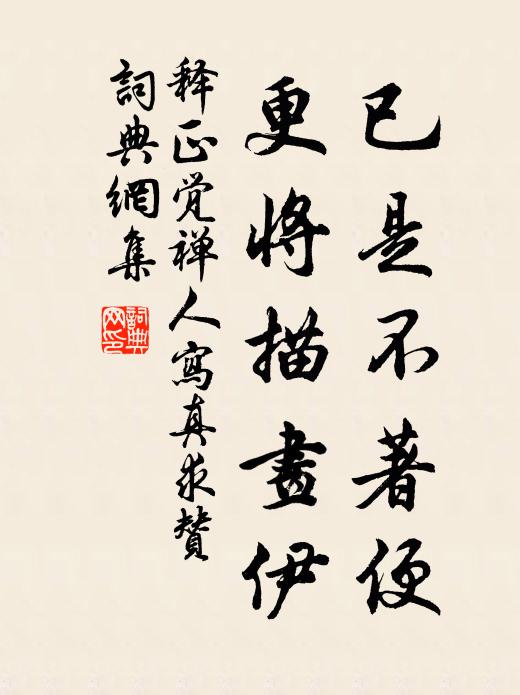 已是不著便
更將描畫伊
释正觉禅人寫真求贊
詞典網集
詞典
网印